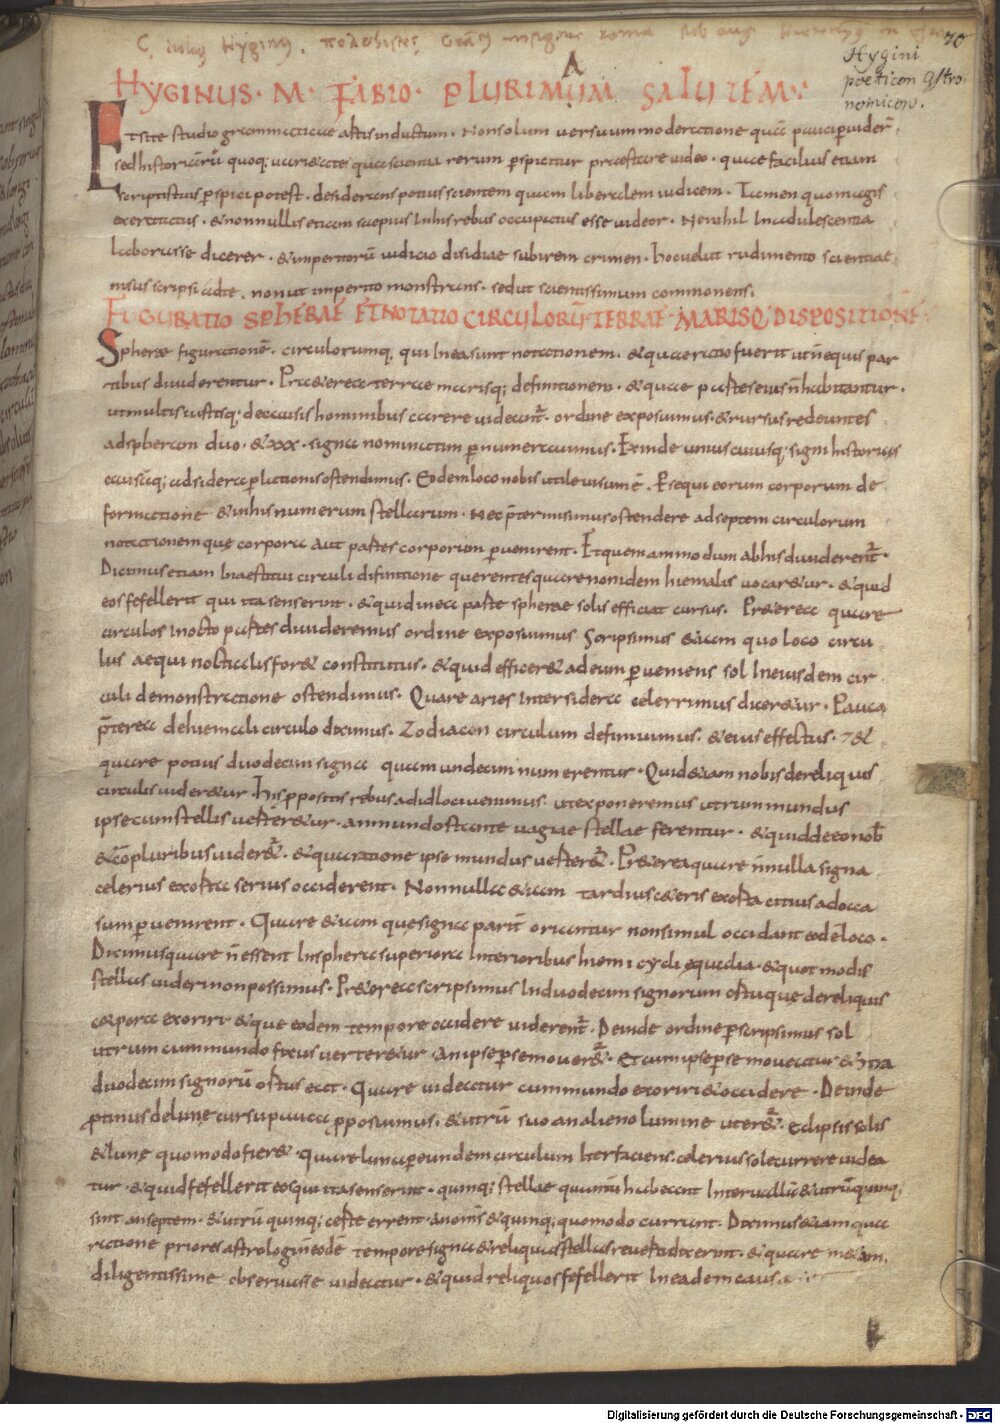 70
Hygini
poeticon Astro
nomicon.
A
HYGINUS · M · FABIO · PLURIMAM SALUTEM
Etsite studio grammaticae artis inductum · Non solum uersuum moderatione quā pauci puider̄
sed historiarū quoq; uarietate qua scientia rerum pspicitur praestare uideo · quae facilius etiam
scriptis tuis pspici potest · desiderans potius scientem quam liberalem iudicem · Tamen quo magis
exercitatus · & non nullis etiam saepius In his rebus occupatus esse uideor · Ne nihil In adulescentia
laborasse dicerer · & imperitorū iudicio disidiae subirem crimen · hoc uelut rudimento scientiae
nisus scripsi ad te · non ut imperito monstrans · sed ut scientissimum commonens.
FIGURATIO SPHERAE ET NOTATIO CIRCULORŪ TERRAE MARISQ; DISPOSITIONĒ
Spherae figurationē · circulorumq, qui In ea sunt notationem · & quae ratio fuerit ut n̄ equis par
tibus diuiderentur · Praeterea terrae marisq; definitionem · & quae partes eius n̄ habitantur ·
ut multis iustisq; de causis hominibus carere uideant̄ · ordine exposuimus · & rursus redeuntes
ad spheram duo · & xxx · signa nominatim p numerauimus · Exinde unius cuiusq; signi historias
causāq; ad sidera platationis ostendimus · Eodem loco nobis utile uisum ē · Psequi eorum corporum de
formatione & in his numerum stellarum · Nec p̄termisimus ostendere ad septem circulorum
notationem que corpora aut partes corporum puenirent · Et quem ammodum ab his diuiderent̄ ·
Diximus etiam In aestiui circuli difinitione querentes quare non idem hiemalis uocaretur · & quid
eos fefellerit qui ita senserint · & quid in ea parte spherae solis efficiat cursus · Pr&erea quare
circulos In octo partes diuideremus ordine exposuimus Scripsimus &iam quo loco circu
lus aequinoctialis for& constitutus · & quid efficer& ad eum pueniens sol In eiusdem cir
culi demonstratione ostendimus · Quare aries Inter sidera celerrimus dicer&ur · Pauca
p̄terea de lacteali circulo diximus · Zodiacon circulum definiuimus · & eius effectus · 7 &
quare potius duodecim signa quam undecim numerentur · Quid &iam nobis de reliquis
circulis uider&ur · His ppositis rebus ad id loci uenimus ut exponeremus utrum mundus
ipse cum stellis uerter&ur · an mundo stante uagae stellae ferentur · & quid de eo nob̄
& cōpluribus uider& · & qua ratione ipse mundus uerter& · Pr&erea quare n̄nulla signa
celerius exorta serius occiderent · Nonnulla &iam tardius c&eris exorta citius ad occa
sum puenirent · Quare &iam que signa pariť oriantur non simul occidant eodē loco ·
Diximus quare n̄ essent In sphera superiora Interioribus hiomicycli equedia · & quot modis
stellas uideri non possimus · Pr&erea scripsimus In duodecim signorum ortu que de reliquis
corpora exoriri & que eodem tempore occidere uiderent̄ · Deinde ordine pscripsimus sol
utrum cum mundo fixus uerter&ur · an ipse p se mouer& · Et cum ipse p se moueatur & ita
duodecim signorū ortus eat · Quare uideatur cum mundo exoriri & occidere · Deinde
ptinus de lune cursu pauca pposuimus · & utrū suo an alieno lumine uter& · Eclipsis solis
& lune quomodo fier& · quare luna p eundem circulum Iter faciens · celerius sole currere uidea
tur · & quid fefellerit eos qui ita senserint · quinq; stellae quantū habeant Interuallū & utrū quinq,
sint an septem · & utrū quinq; certe errent an omīs & quinq; quomodo currant · Diximus &iam qua
ratione priores astrologi n̄ eodē tempore signa & reliquas stellas reuerti dixerint · & quare m&am
diligentissime obseruasse uideatur · & quid reliquos fefellerit In eadem causa
Digitalisierung gefördert durch die Deutsche Forschungsgemeinschaft - DFG